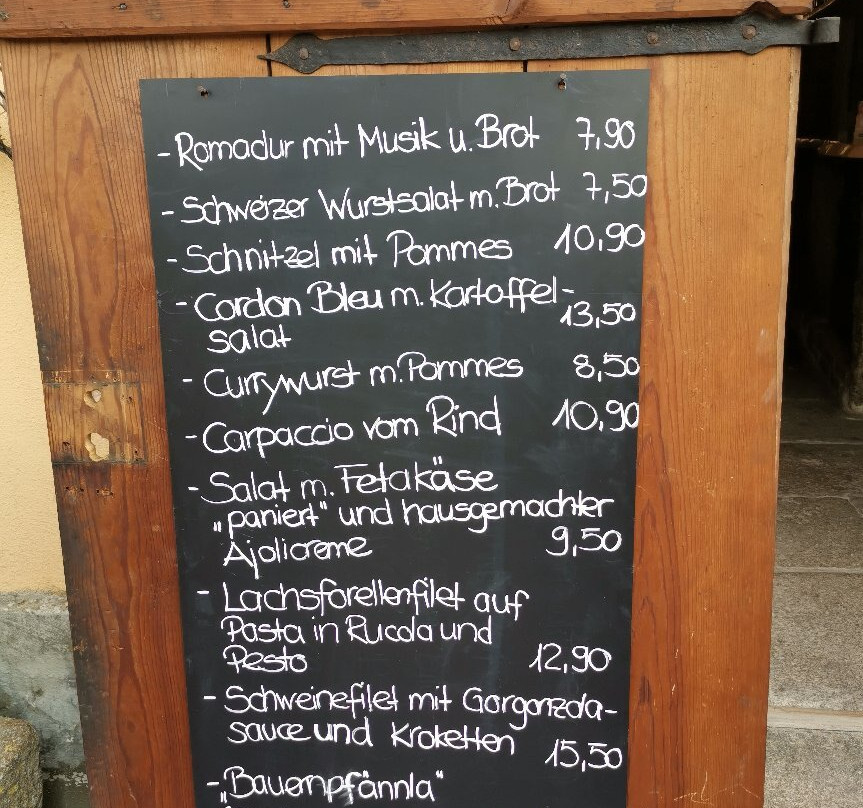 - Romadur mit Musik u. Brot 7,90
- Schweizer Wurstsalat m. Brot 7,50
- Schnitzel mit Pommes 10,90
- Cordon Bleu m. Kartoffel-
salat 13,50
- Currywurst m. Pommes 8,50
- Carpaccio vom Rind 10,90
- Salat m. Fetakäse
„paniert“ und hausgemachter
Ajolicreme 9,50
- Lachsforellenfilet auf
Pasta in Rucola und
Pesto 12,90
- Schweinefilet mit Gorgonzola-
sauce und Kroketten 15,50
- „Bauernpfännla“